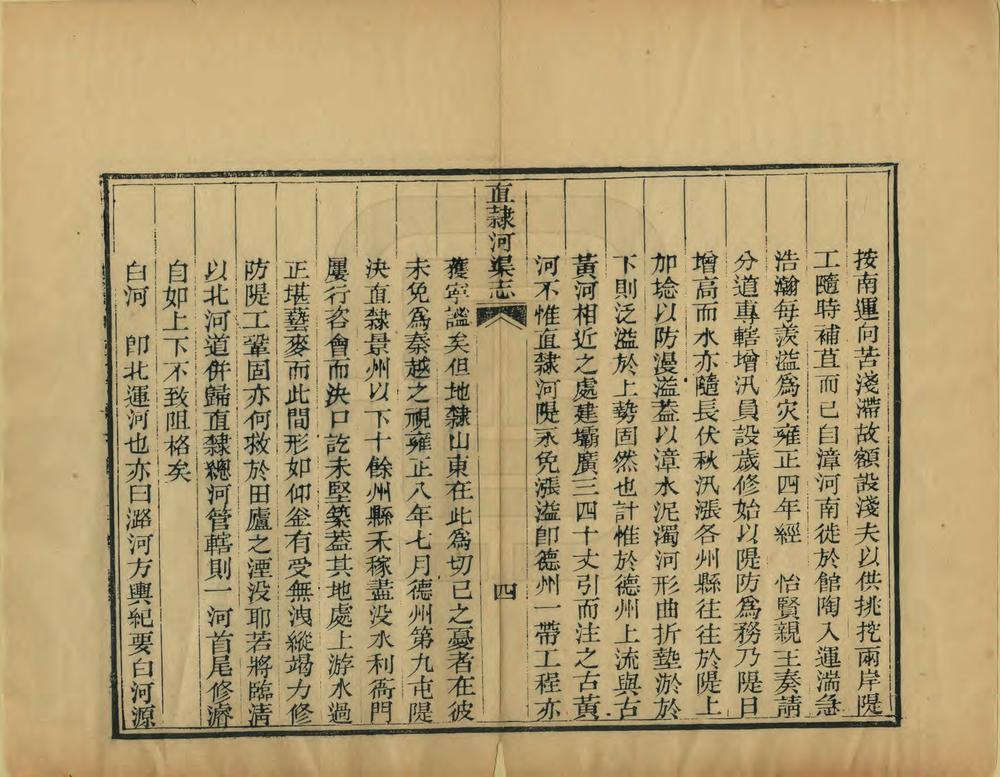 按南運向苦淺滯故額設淺夫以供挑挖兩岸隄
工隨時補苴而已自漳河南徙於館陶入運湍急
浩瀚每羨溢為灾雍正四年經　怡賢親王奏請
分道專轄增汛員設歲修始以隄防為務乃隄日
增高而水亦隨長伏秋汛漲各州縣往往於隄上
加埝以防漫溢蓋以漳水泥濁河形曲折墊淤於
下則泛溢於上勢固然也計惟於德州上流與古
黃河相近之處建壩廣三四十丈引而注之古黃
河不惟直隸河隄永免漲溢卽德州一帶工程亦
直隸河渠志
四
獲寧謐矣但地隸山東在此為切已之憂者在彼
未免為秦越之視雍正八年七月德州第九屯隄
決直隸景州以下十餘州縣禾稼盡没水利衙門
屢行咨會而決口訖未堅築蓋其地處上游水過
正堪藝麥而此間形如仰釡有受無洩縱竭力修
防隄工鞏固亦何救於田廬之湮没耶若將臨清
以北河道併歸直隸總河管轄則一河首尾修濬
自如上下不致阻格矣
白河　卽北運河也亦曰潞河方輿紀要白河源